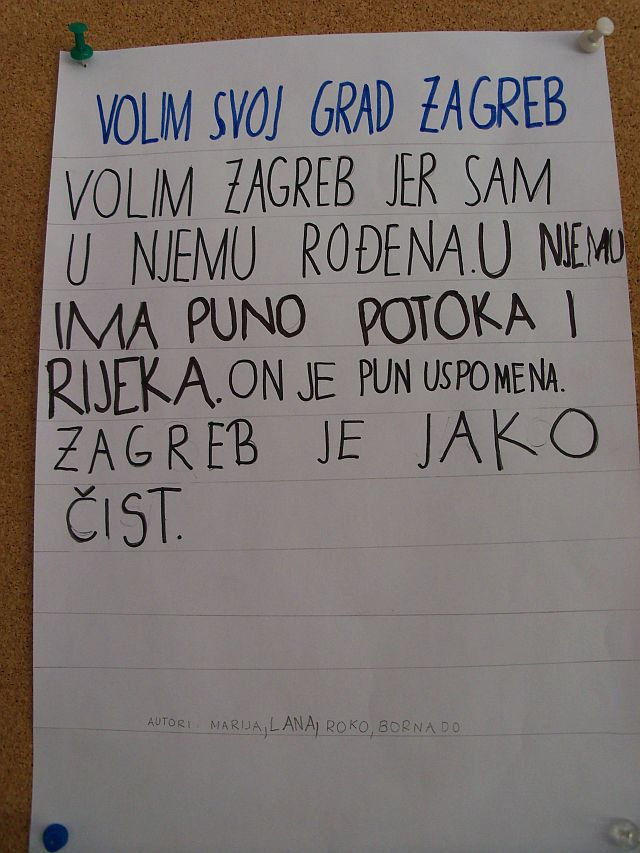 VOLIM SVOJ GRAD ZAGREB
VOLIM ZAGREB JER SAM
U NJEMU ROĐENA. U NJEMU
IMA PUNO POTOKA I
RIJEKA. ON JE PUN USPOMENA.
ZAGREB JE JAKO
ČIST.
AUTORI: MARIJA, LANA, ROKO, BORNA DO